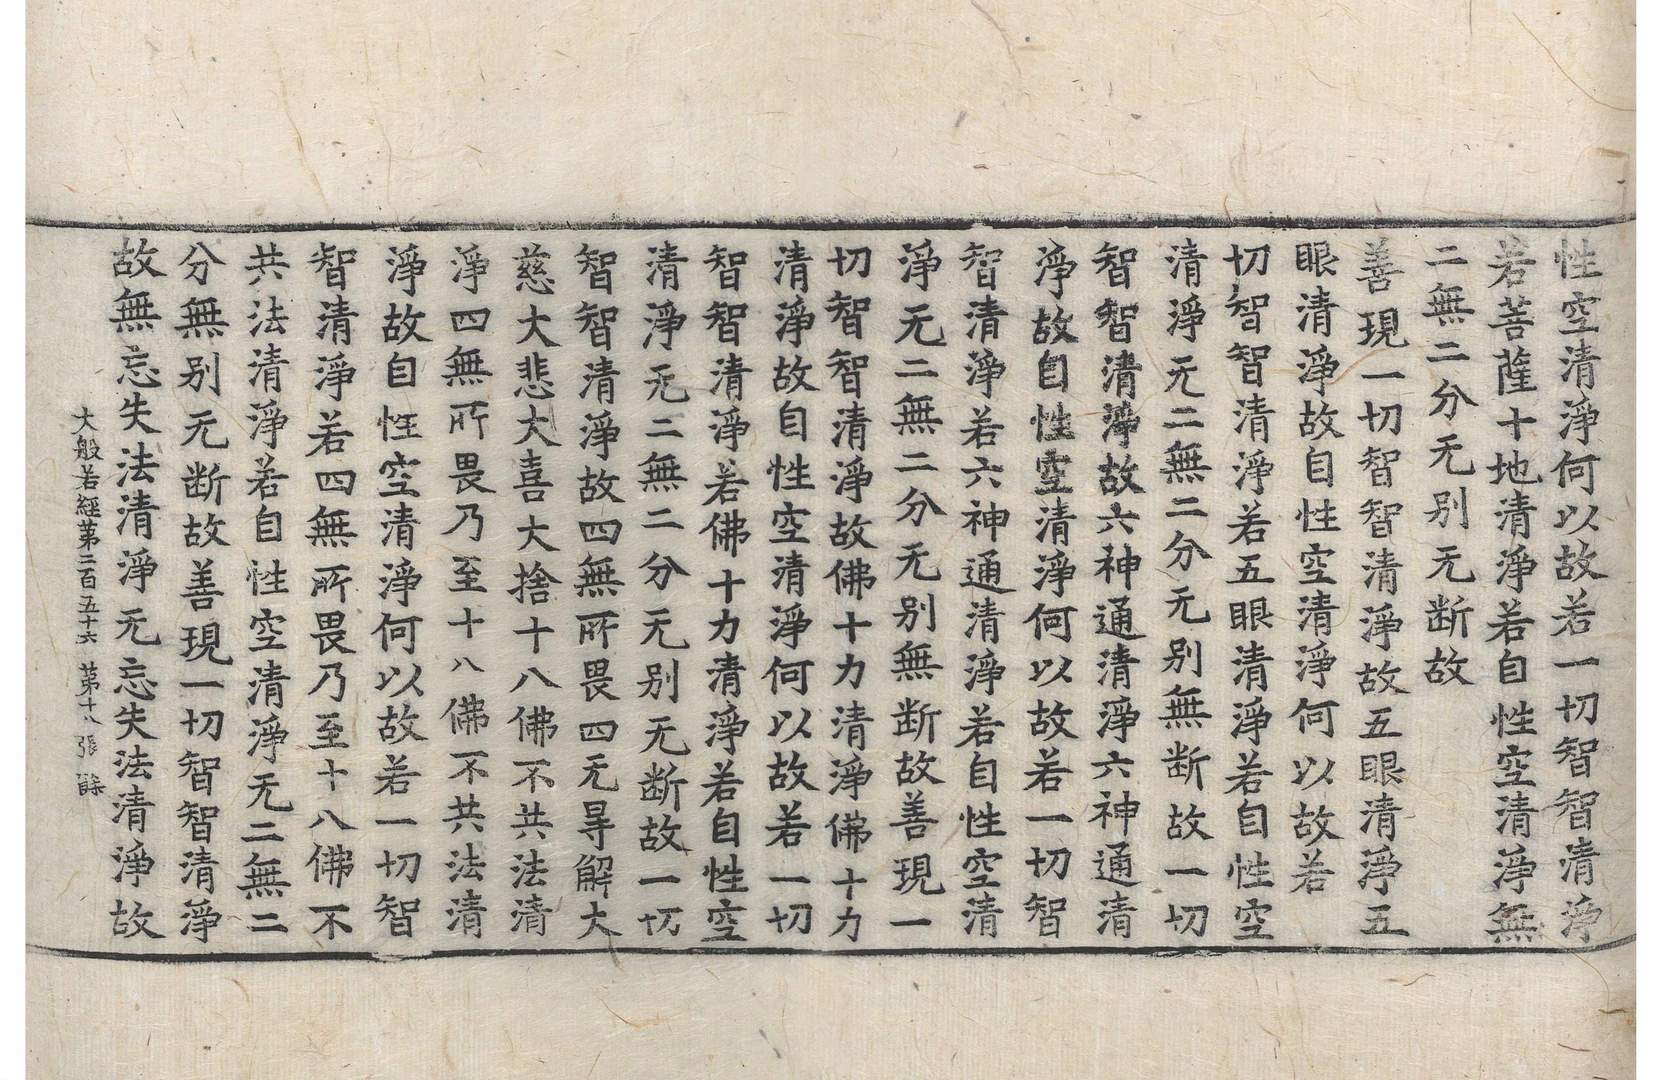 性空清淨何以故若一切智智清淨
若菩薩十地清淨若自性空清淨無
二無二分无别无断故
善現一切智智清淨故五眼清淨五
眼清淨故自性空清淨何以故若
切智智清淨若五眼清淨若自性空
清淨无二無二分无别無断故一切
智智清淨故六神通清淨六神通清
淨故自性空清淨何以故若一切智
智清淨若六神通清淨若自性空清
淨无二無二分无别無断故善現一
切智智清淨故佛十力清淨佛十力
清淨故自性空清淨何以故若一切
智智清淨若佛十力清淨若自性空
清淨无二無二分无别无断故一切
智智清淨故四無所畏四无㝵解大
慈大悲大喜大捨十八佛不共法清
淨四無所畏乃至十八佛不共法清
淨故自性空清淨何以故若一切智
智清淨若四無所畏乃至十八佛不
共法清淨若自性空清淨无二無二
分無别无断故善現一切智智清淨
故無忘失法清淨无忘失法清淨故
大般若經第二百五十六 第十八張